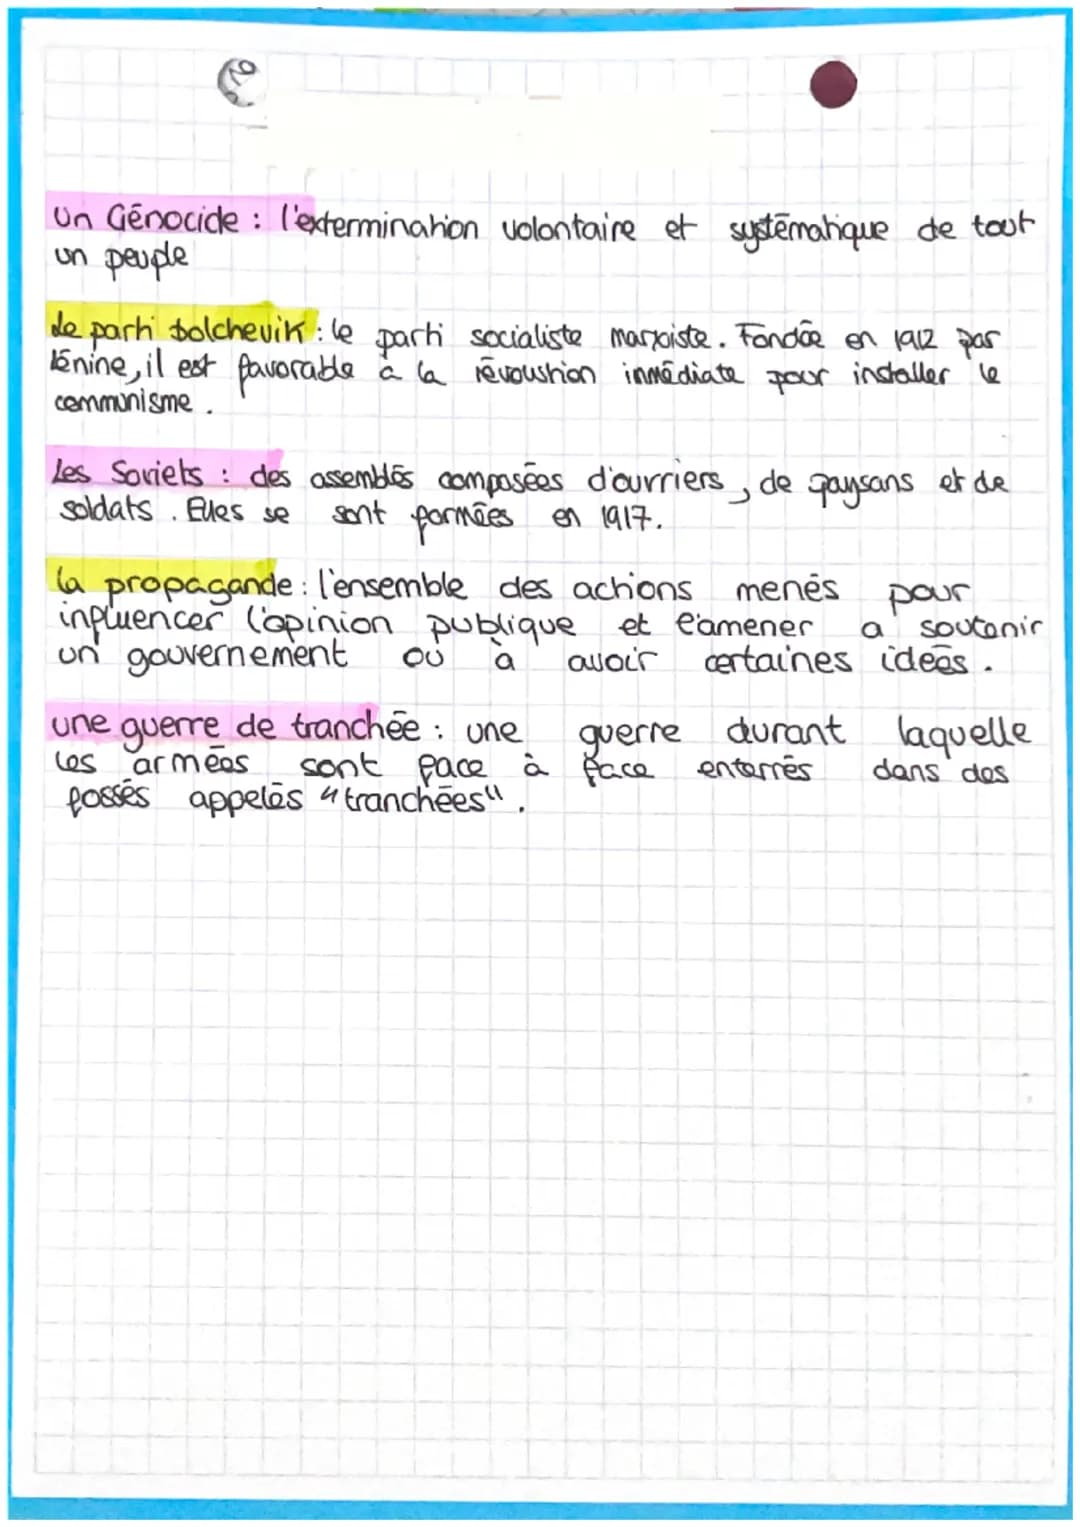 Un Génocide : l'extermination volontaire et systématique de tout
un peuple
Le parti bolchevik : le parti socialiste marxiste. Fondée en 1912 par
Lénine, il est favorable a la révoustion immédiate pour installer le
communisme.
Les Soviets : des assemblés composées d'ourriers, de paysans et de
soldats. Elles se sont formées en 1917.
la propagande : l'ensemble des actions menés pour
influencer l'opinion publique et l'amener a soutenir
un gouvernement ou à avoir certaines idées.
une guerre de tranchée : une guerre durant laquelle
les armées sont face à face enterrés dans des
fossés appelés "tranchées".